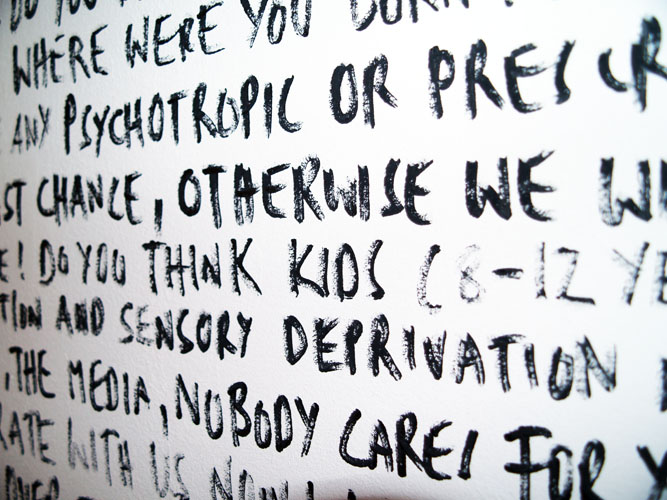 DO YOU
WHERE WERE YOU BORN
ANY PSYCHOTROPIC OR PRESCR
ST CHANCE, OTHERWISE WE WI
E! DO YOU THINK KIDS (8-12 YE
TION AND SENSORY DEPRIVATION
, THE MEDIA, NOBODY CARES FOR Y
RATE WITH US NOW!
OVER